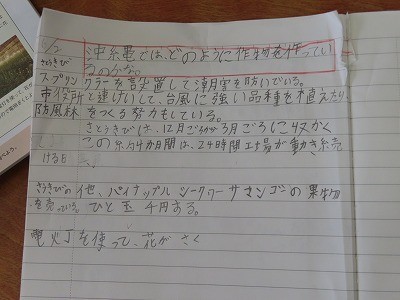 1/2 沖糸黒では、どのように作物を作ってい
るのかな。
さとうきび
スプリンクラーを設置して潮害を防いでいる。
市役所と連けいして、台風に強い品種を植えたり
防風林をつくる努力もしている。
さとうきびは、12月ごろから3月ごろに収かく
この 約4か月間は、24時間工場が動き続
けると
さとうきびの他、パイナップルシークワーサマンゴの果物
を売っている。ひと玉 千円する。
電火丁を使って、花がさく